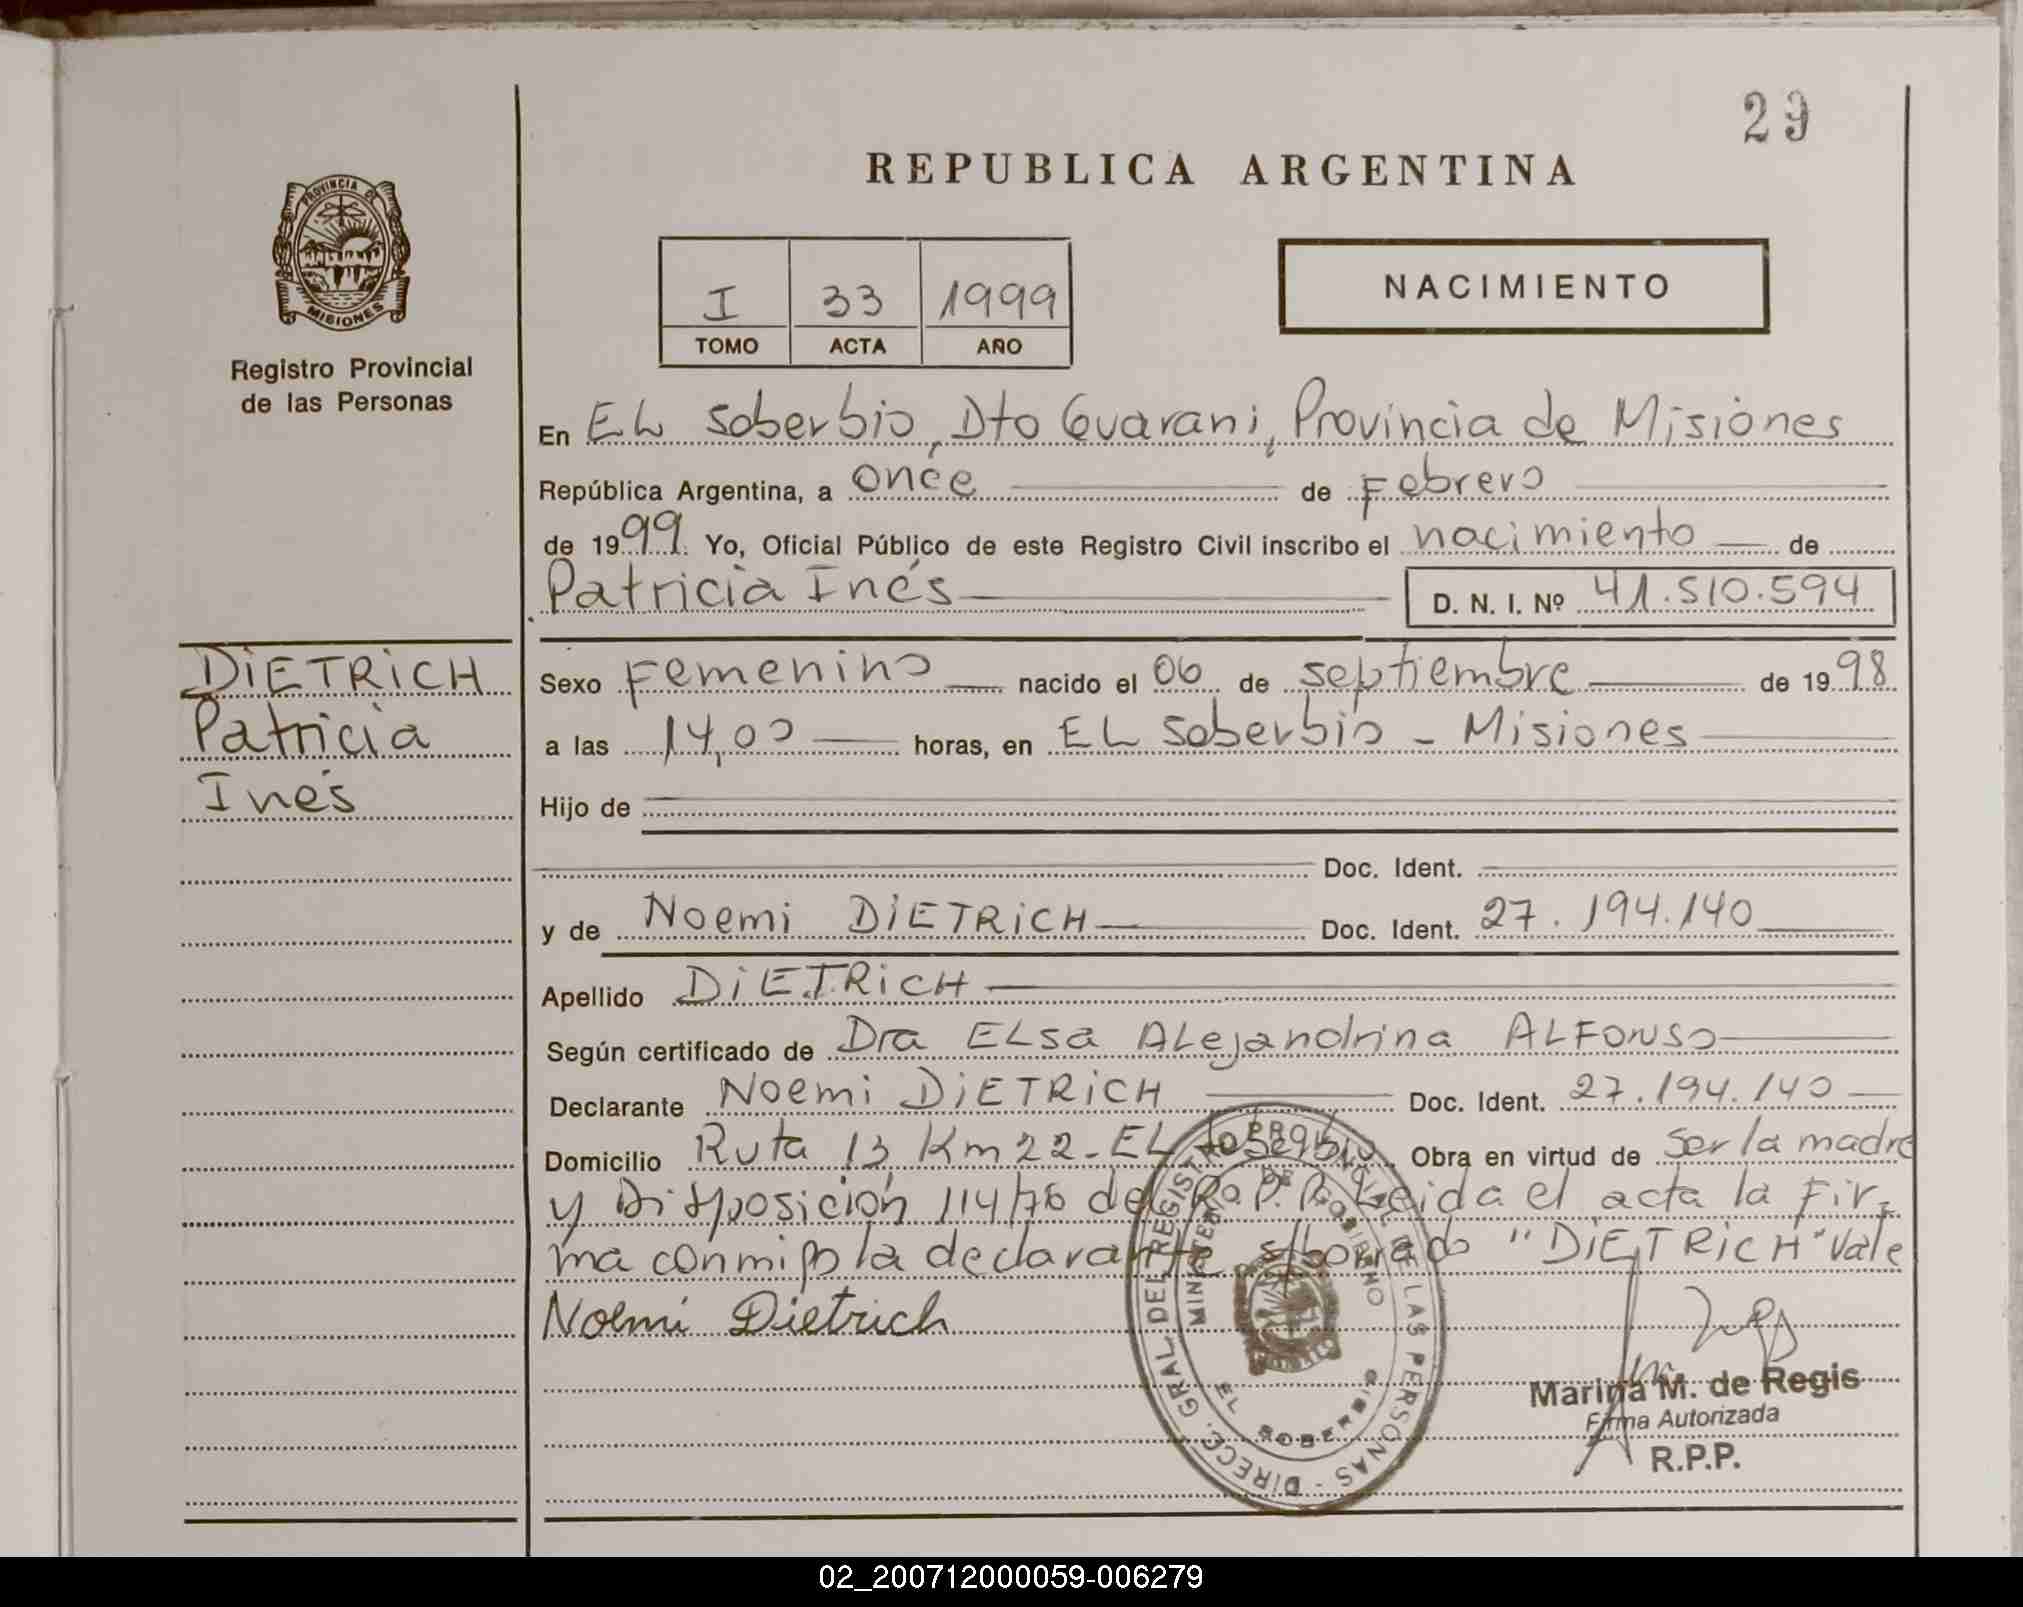 29
REPUBLICA ARGENTINA
PROVINCIA DE MISIONES
Registro Provincial
de las Personas
I 33 1999
TOMO ACTA AÑO
NACIMIENTO
En EL Soberbio, Dto Guarani, Provincia de Misiones
República Argentina, a once de Febrero
de 1999. Yo, Oficial Público de este Registro Civil inscribo el nacimiento de
Patricia Inés D. N. I. Nº 41.510.594
DIETRICH
Patricia
Inés
Sexo Femenino nacido el 06 de septiembre de 1998
a las 14,00 horas, en EL Soberbio - Misiones
Hijo de
Doc. Ident.
y de Noemi DIETRICH Doc. Ident. 27.194.140
Apellido DIETRICH
Según certificado de Dra ELsa ALejandrina ALFONSO
Declarante Noemi DIETRICH Doc. Ident. 27.194.140
Domicilio Ruta 13 Km 22 - EL Soberbio Obra en virtud de ser la madre
y Disposición 114/76 del R.P.P. Leida el acta la Fir-
ma conmigo la declarante s/borrado "DIETRICH" Vale
Noemí Dietrich
DIRECC. GRAL. DEL REGISTRO PROVINCIAL DE LAS PERSONAS
MINISTERIO DE GOBIERNO
EL SOBERBIO
Marina M. de Regis
Firma Autorizada
R.P.P.
02_200712000059-006279